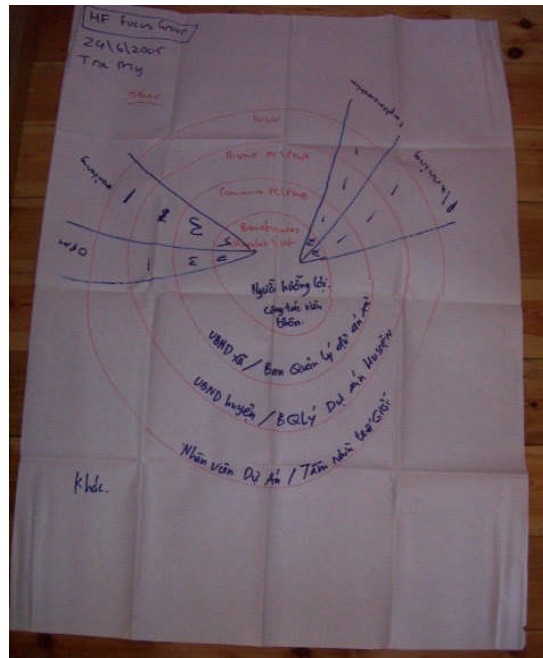 HF Focus Group
24/6/2005
Tra My
Other
WGV
District PC/PMB
Commune PC/PMB
Beneficiaries
Implementation
Planning
O&M
Người hưởng lợi.
Cộng tác viên
thôn.
UBND xã / Ban Quản lý dự án xã
UBND huyện / BQLý Dự Án Huyện
Nhân viên Dự Án / Tầm nhìn thế Giới
Khác.